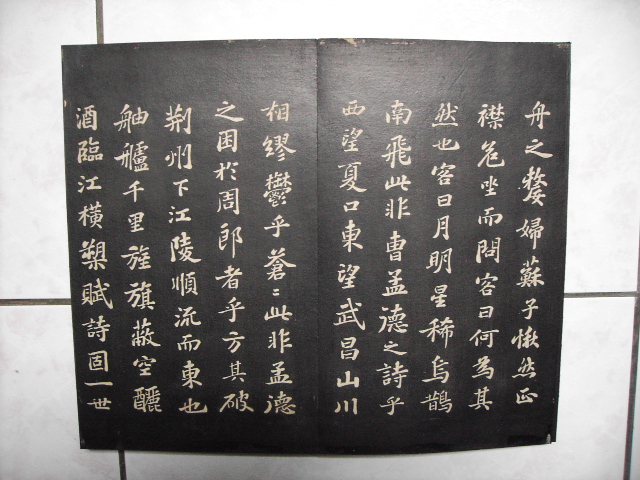 舟之嫠婦蘇子愀然正
襟危坐而問客曰何為其
然也客曰月明星稀烏鵲
南飛此非曹孟德之詩乎
西望夏口東望武昌山川
相繆鬱乎蒼〻此非孟德
之困於周郎者乎方其破
荆州下江陵順流而東也
舳艫千里旌旗蔽空釃
酒臨江橫槊賦詩固一世